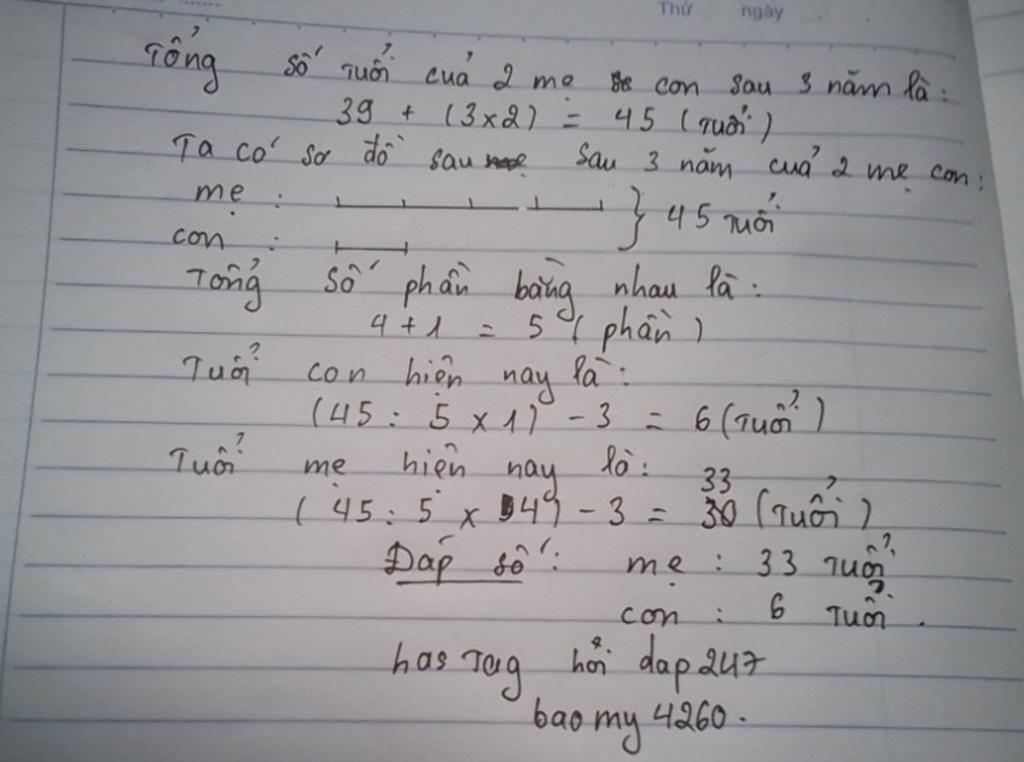 Thứ ngày
Tổng số tuổi của 2 mẹ con sau 3 năm là:
39 + (3x2) = 45 (tuổi)
Ta có sơ đồ sau sau 3 năm của 2 mẹ con:
mẹ : } 45 tuổi
con :
Tổng số phần bằng nhau là:
4 + 1 = 5 (phần)
Tuổi con hiện nay là:
(45 : 5 x 1) - 3 = 6 (tuổi)
Tuổi mẹ hiện nay là:
33
(45 : 5 x 4) - 3 = 30 (tuổi)
Đáp số: mẹ : 33 tuổi
con : 6 tuổi.
has Tag hỏi dap 247
bao my 4260.